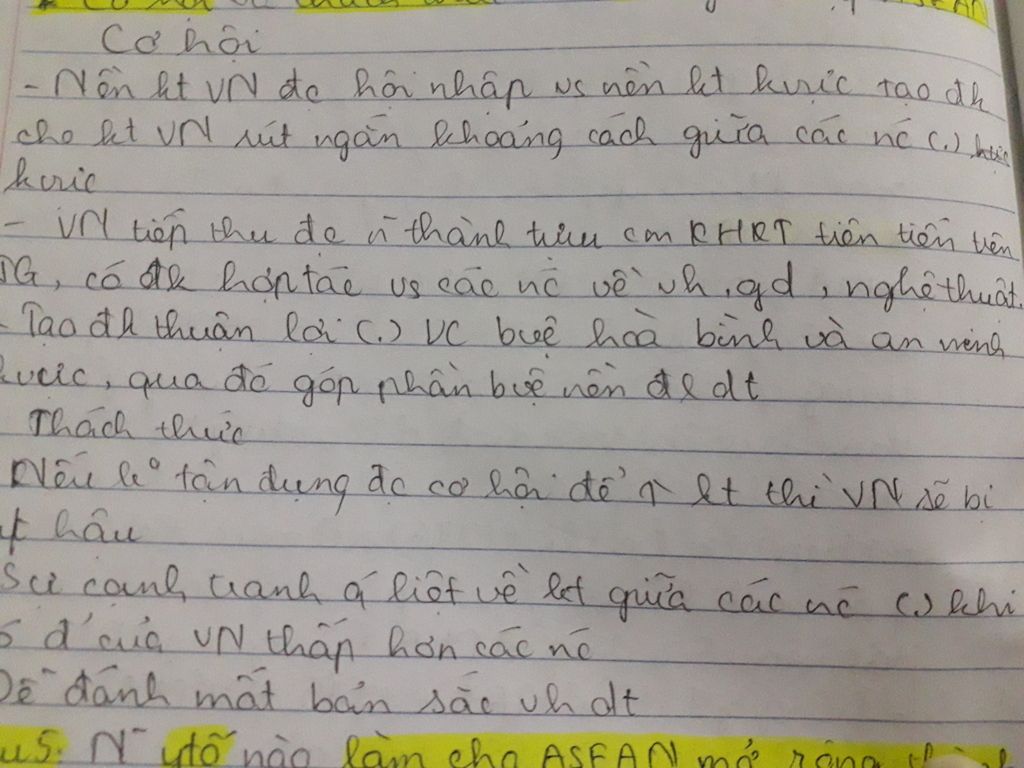 ASEAN
Cơ hội
- Nền kt VN đc hội nhập vs nền kt kvực tạo đk
cho kt VN rút ngắn khoảng cách giữa các nc (.)
kvực
- VN tiếp thu đc n~ thành tựu con KHKT tiên tiến trên
TG, có đk hợp tác vs các nc về vh, gd, nghệ thuật.
- Tạo đk thuận lợi (.) vc bvệ hoà bình và an ninh
kvực, qua đó góp phần bvệ nền đl dt
Thách thức
Nếu k° tận dụng đc cơ hội để ↑ kt thì VN sẽ bị
tụt hậu
Sự cạnh tranh q' liệt về kt giữa các nc (.) khi
đ' của VN thấp hơn các nc
Dễ đánh mất bản sắc vh dt
u5. N~ ytố nào làm cho ASEAN mở rộng